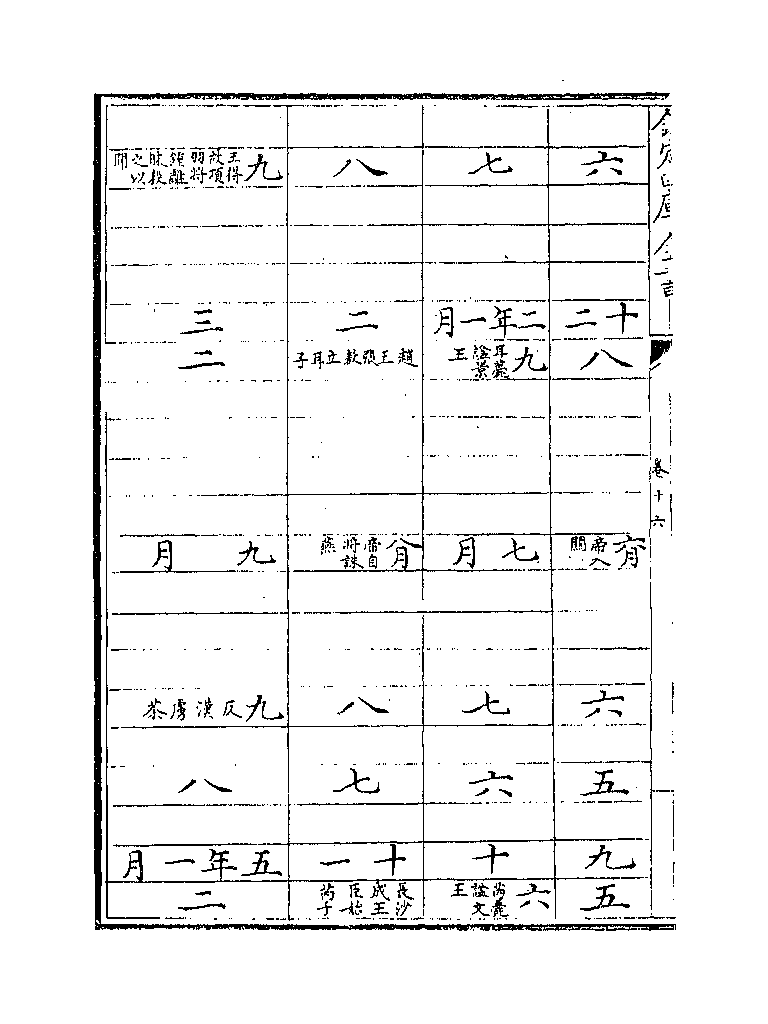 欽定四庫全書
卷十六
六
十二
八
六月 帝入關
六
五
九
五
七
二年一月
九 耳薨謚景王
七月
七
六
十
六 芮薨謚文王
八
二
趙王張敖立耳子
八月 帝自將誅燕
八
七
十一
長沙成王臣始芮子
九 王得故項羽將鍾離眛殺之以聞
三
二
九月
九 反漢虜荼
八
五年一月
二